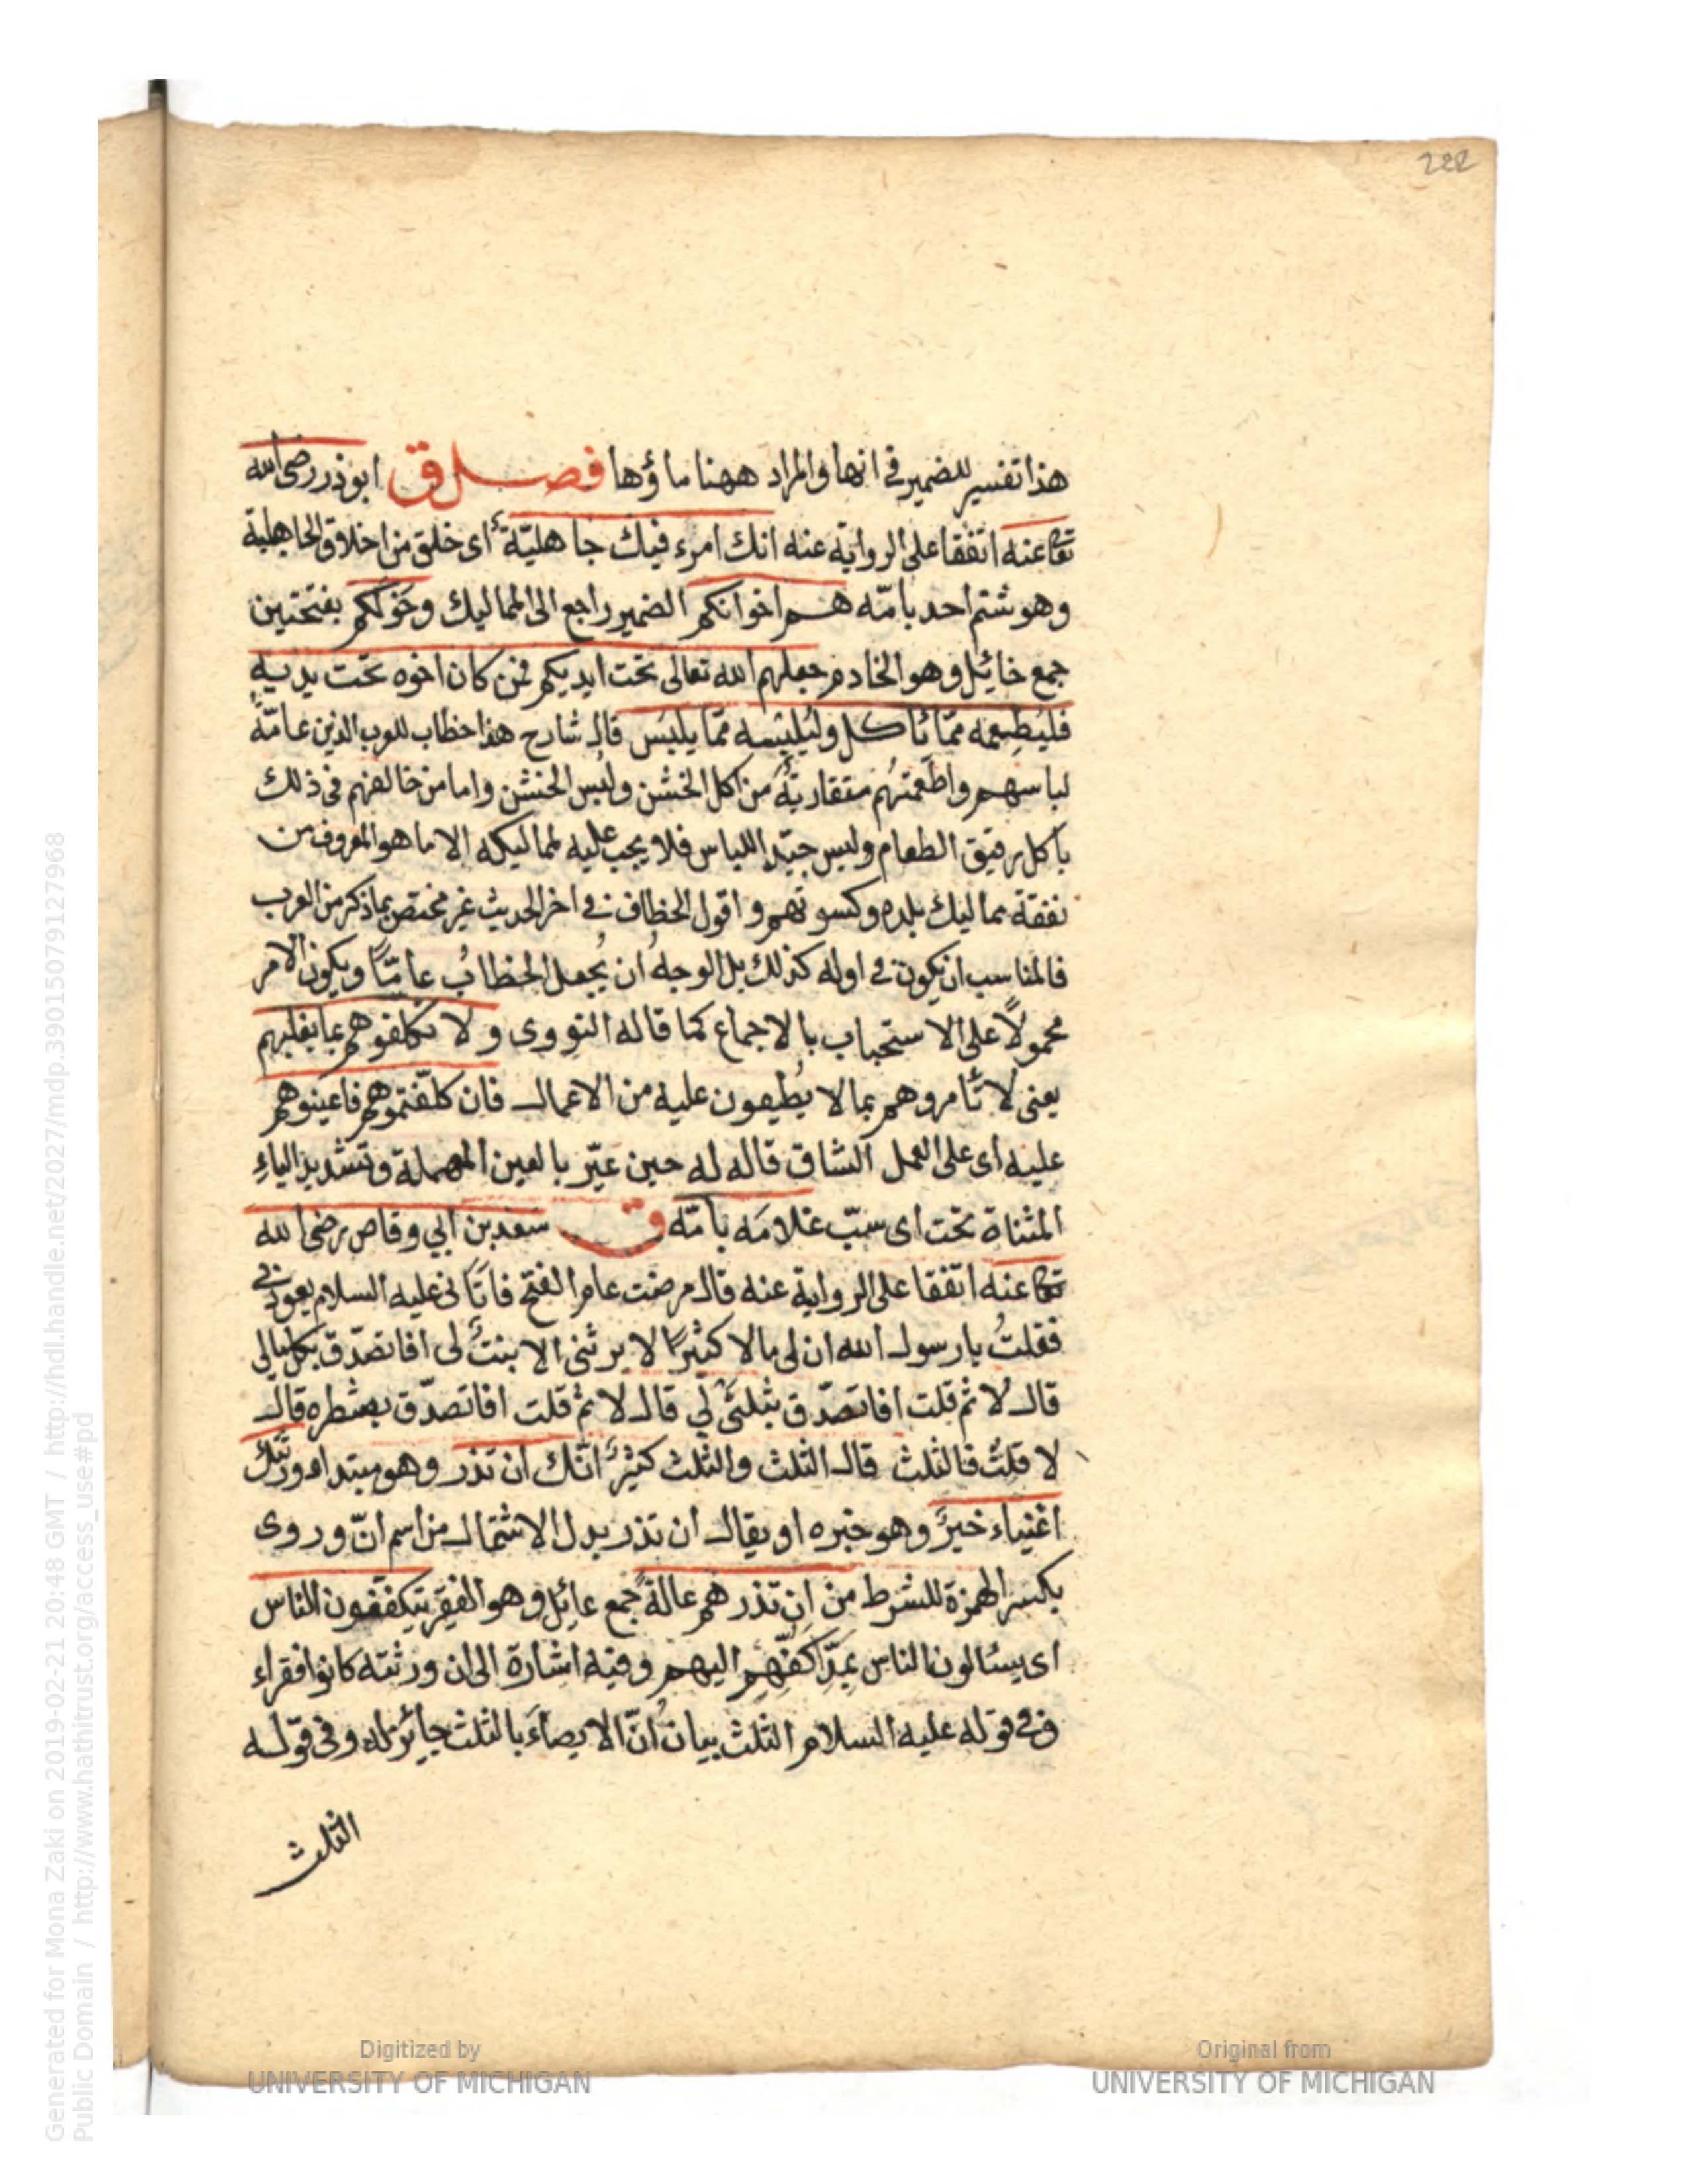 222
هذا تفسير للضمير في انها والمراد ههنا ماؤها فصل ق ابوذر رضى الله
تعا عنه اتفقا على الرواية عنه انك امرء فيك جاهليّة اى خلق من اخلاق الجاهلية
وهو شتم احد بامّه هم اخوانكم الضمير راجع الى المماليك وخولكم بفتحتين
جمع خائل وهو الخادم جعلهم الله تعالى تحت ايديكم فمن كان اخوه تحت يديه
فليُطعِمه ممّا يأكل وليُلبِسه ممّا يلبَس قال شارح هذا خطاب للعرب الذين عامّة
لباسهم واطعمتهم متقاربة من اكل الخشن ولبس الخشن واما من خالفهم في ذلك
بأكل رقيق الطعام ولبس جيّد اللباس فلا يجب عليه لمماليكه الا ما هو المعروف من
نفقة مماليك بلده وكسوتهم واقول الخطاب في اخر الحديث غير مختص بما ذكر من العرب
فالمناسب ان يكون في اوله كذلك بل الوجه ان يُجعل الخطابُ عامّاً ويكون الامر
محمولاً على الاستحباب بالاجماع كما قاله النووى ولا تكلفوهم بما يغلبهم
يعنى لا تأمروهم بما لا يُطيقون عليه من الاعمال فان كلّفتموهم فاعينوهم
عليه اى على العمل الشاق قاله له حين عيّر بالعين المهملة وتشديد الياء
المثناة تحت اى سبّ غلامَه بامّه ق سعد بن ابي وقاص رضى الله
تعا عنه اتفقا على الرواية عنه قال مرضت عام الفتح فاتانى عليه السلام يعودني
فقلتُ يا رسول الله ان لى مالا كثيرًا لا يرثنى الا بنتٌ لى افاتصدّق بكل مالي
قال لا ثم قلت افاتصدّق بثلثى لي قال لا ثم قلت افاتصدّق بشطره قال
لا قلتُ فالثلث قال الثلث والثلث كثيرٌ انّك ان تذر وهو مبتداء ورثتك
اغنياء خيرٌ وهو خبره او يقال ان تذر بدل الاشتمال من اسم انّ وروى
بكسر الهمزة للشرط من ان تذرهم عالةً جمع عائل وهو الفقير يتكففون الناس
اى يسئالون الناس بمَدّ اكفّهم اليهم وفيه اشارة الى ان ورثته كانوا فقراء
وفي قوله عليه السلام الثلث بيان انّ الايصاءَ بالثلث جائز له وفى قوله
الثلث
Digitized by
UNIVERSITY OF MICHIGAN
Original from
UNIVERSITY OF MICHIGAN
Generated for Mona Zaki on 2019-02-21 20:48 GMT / http://hdl.handle.net/2027/mdp.39015079127968
Public Domain / http://www.hathitrust.org/access_use#pd